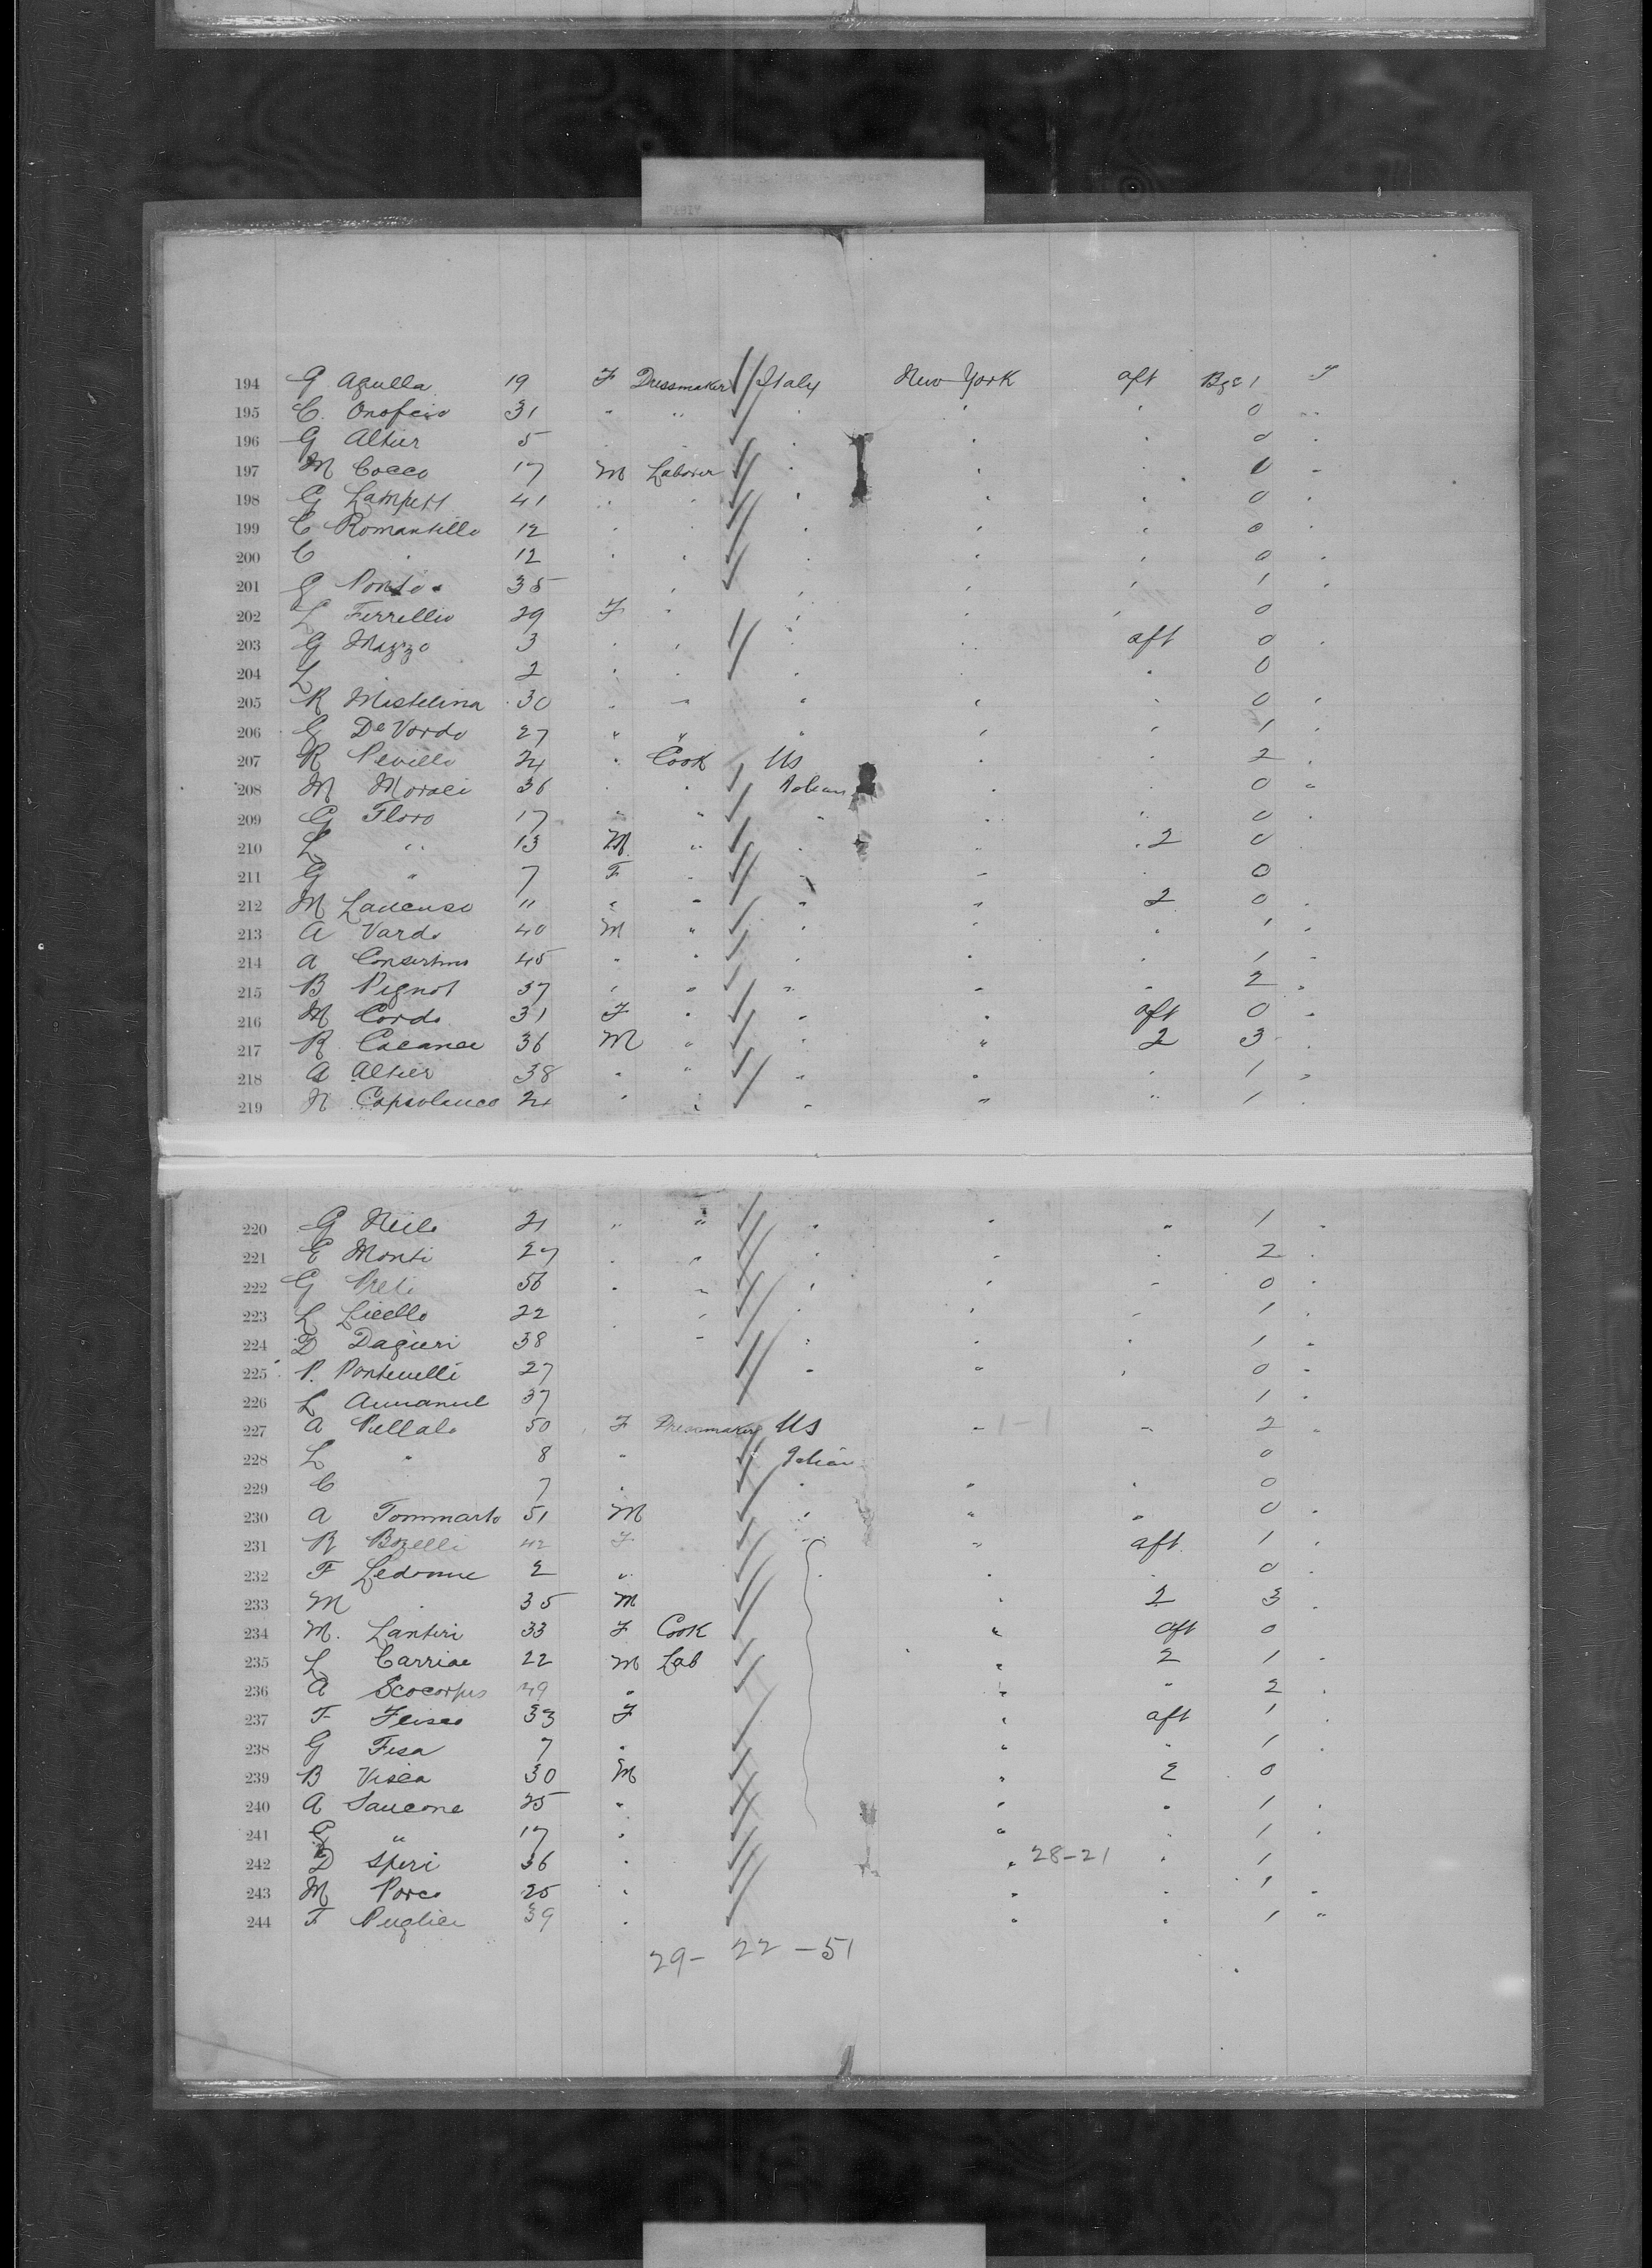 194 G Aqulla 19 F Dressmaker Italy New York aft Bge 1
195 C. Onofrio 31 " " " " " 0 "
196 G Altier 5 " " " " " 0 "
197 M Cocco 17 M Laborer " " " 1 "
198 G Lampett 41 " " " " " 0 "
199 C Romantillo 12 " " " " " 0 "
200 C " 12 " " " " " 0 "
201 G Ponto 35 " " " " 1 "
202 L Ferrellio 29 F " " " " 0
203 G Mazzo 3 " " " " aft 0 "
204 L " 2 " " " " 0
205 R Mistelina 30 " " " " " 0 "
206 G De Vordo 27 " " " " " 1 "
207 R Pevillo 24 " Cook US " " 2 "
208 M Moraci 36 " " Italian " " 0 "
209 G Floro 17 " " " " " 0 "
210 L " 13 M " " " 2 0
211 G " 7 F " " " " 0
212 M 11 " " " " 2 0 "
213 A Vardo 40 M " " " " 1 "
214 A 45 " " " " " 1 "
215 B Pignot 37 " " " " " 2 "
216 M Cordo 31 F " " " aft 0 "
217 R 36 M " " " 2 3 "
218 A Altier 38 " " " " " 1 "
219 N 24 " " " " " 1 "
220 G 21 " " " " " 1 "
221 E Monti 27 " " " " " 2 "
222 G Preti 56 " " " " " 0 "
223 L Licello 22 " " " " " 1 "
224 D Dagieri 38 " " " " 1 "
225 P. 27 " " " 0 "
226 L 37 1 "
227 A Pellalo 50 F Dressmaker US " 1-1 " 2 "
228 L " 8 " Italian 0
229 C 7 " " " " 0
230 A Tommarto 51 M " " " 0 "
231 R Bozelli 42 F " " aft 1 "
232 F Ledonne 2 " " " " 0 "
233 M " 35 M " 2 3 "
234 M. Lantiri 33 F Cook " aft 0
235 L Carriae 22 M Lab " 2 1 "
236 A 49 " " " 2 "
237 F 33 F " aft 1 "
238 G Fisa 7 " " " 1 "
239 B Visca 30 M " 2 0
240 A Saucone 25 " " " 1 "
241 G " 17 " " " 1 "
242 D Speri 36 " " 28-21 " 1
243 M Porco 25 " " " 1 "
244 F Puglier 39 " " " 1 "
29- 22 -51